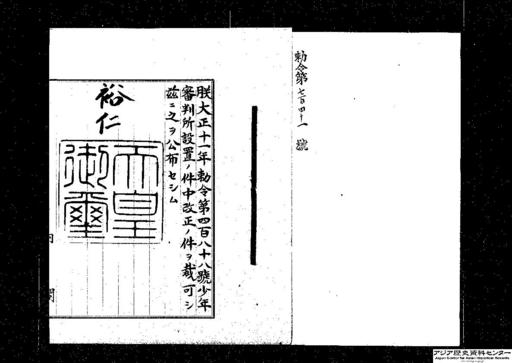 勅令第七百四十一號
朕大正十一年勅令第四百八十八號少年
審判所設置ノ件中改正ノ件ヲ裁可シ
茲ニ之ヲ公布セシム
裕仁
天皇
御璽
内閣
アジア歴史資料センター
Japan Center for Asian Historical Records